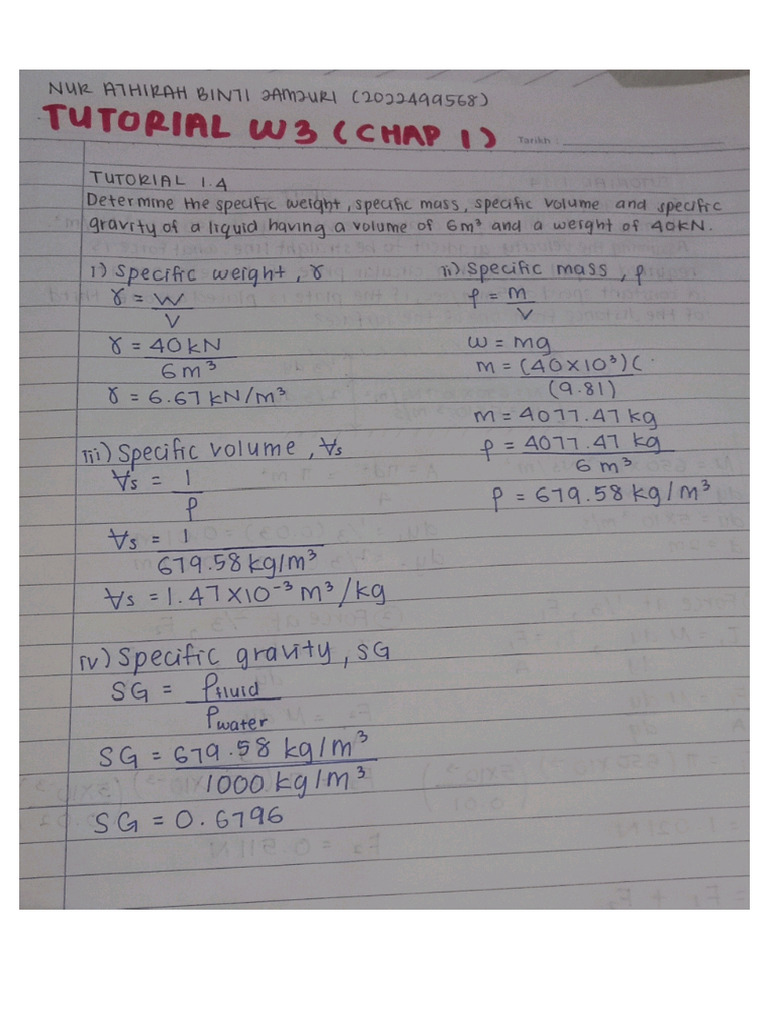 NUR ATHIRAH BINTI JAMJURI (2022499568)
TUTORIAL W3 (CHAP 1)
Tarikh :
TUTORIAL 1.4
Determine the specific weight, specific mass, specific volume and specific
gravity of a liquid having a volume of 6m³ and a weight of 40KN.
i) Specific weight, γ
γ = W
V
γ = 40KN
6m³
γ = 6.67 KN/m³
ii) Specific mass, ρ
ρ = m
V
w = mg
m = (40×10³)(
(9.81)
m = 4077.47 kg
ρ = 4077.47 kg
6 m³
ρ = 679.58 kg/m³
iii) Specific volume, ∀s
∀s = 1
ρ
∀s = 1
679.58 kg/m³
∀s = 1.47×10⁻³ m³/kg
iv) Specific gravity, SG
SG = ρfluid
ρwater
SG = 679.58 kg/m³
1000 kg/m³
SG = 0.6796